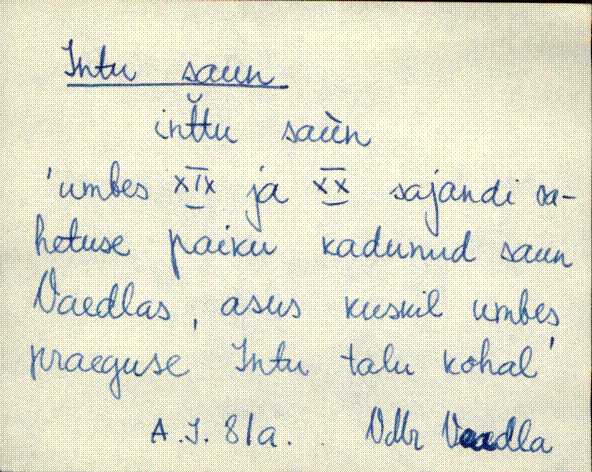 Intu saun
inťtu saùn
'umbes XIX ja XX sajandi va-
hetuse paiku kadunud saun
Vaedlas, asus kuskil umbes
praeguse Intu talu kohal'
A.J. 81a. Vdlr Vaedla